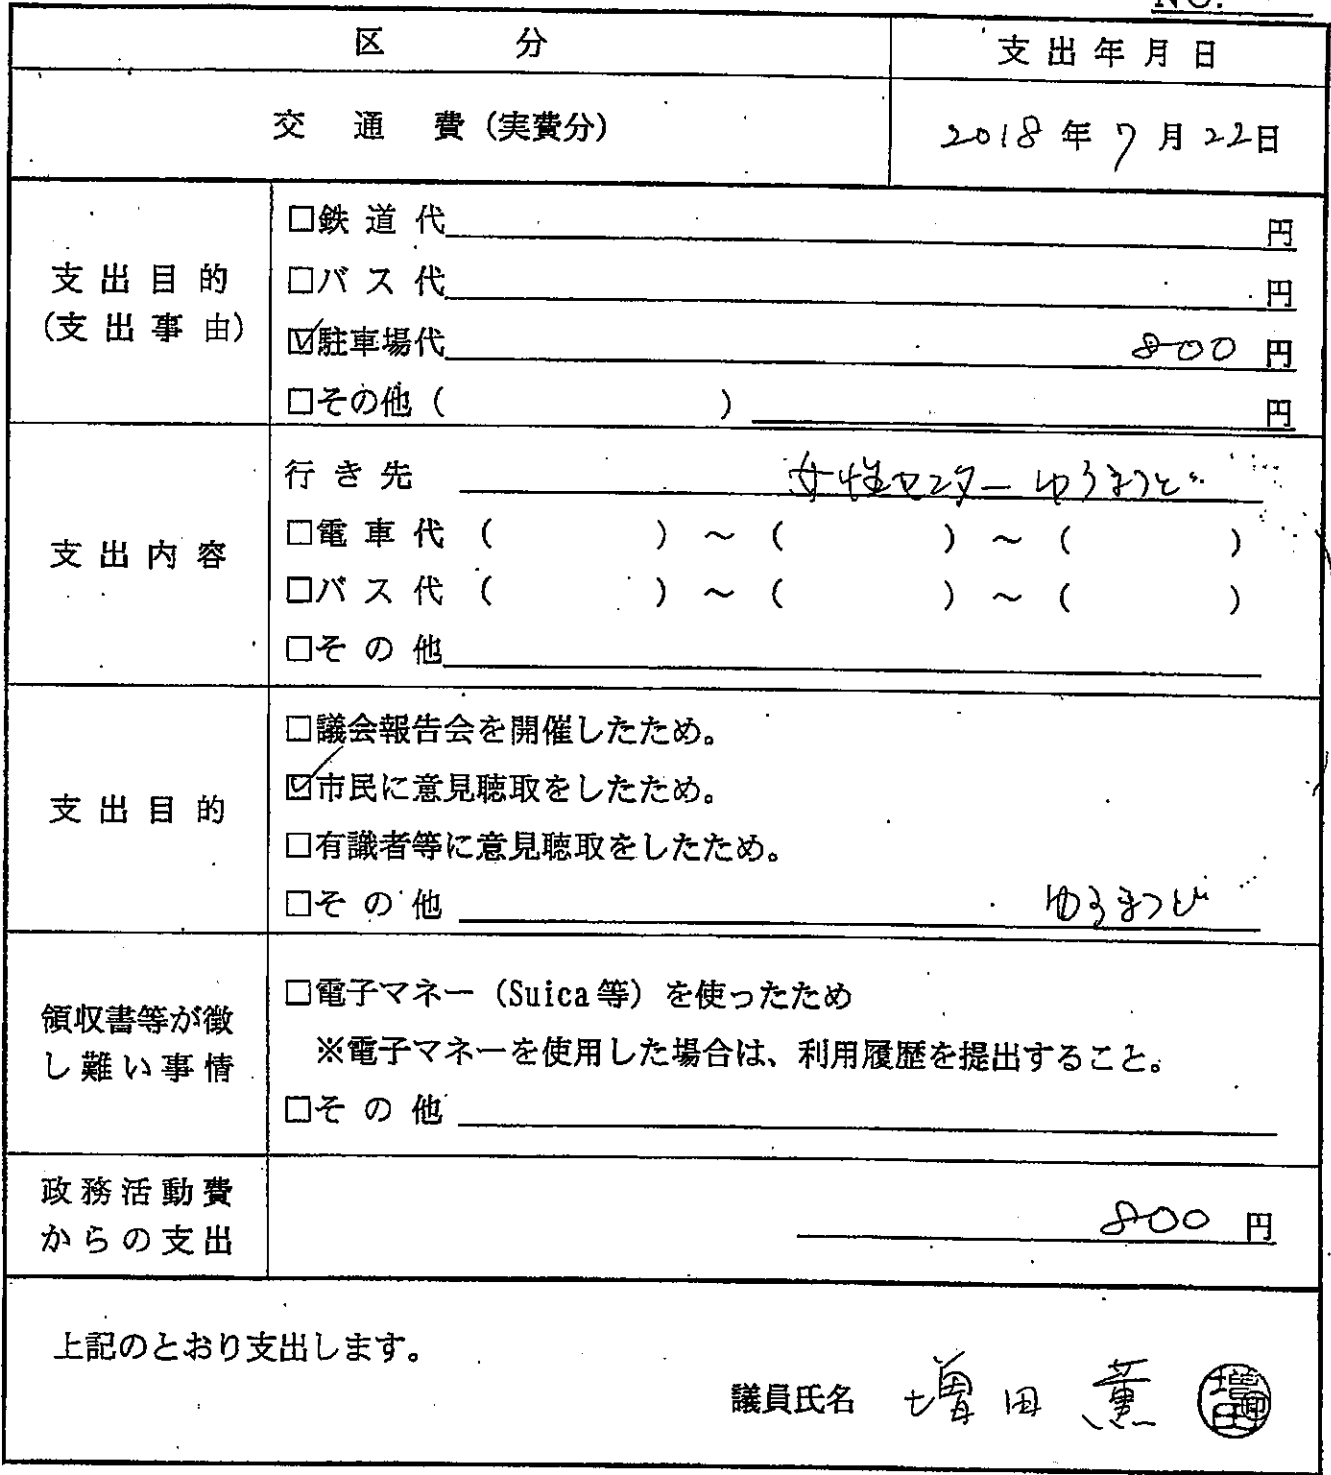 NO.
区 分 支出年月日
交 通 費(実費分) 2018年7月22日
支出目的
(支出事由)
□鉄道代 円
□バス代 円
☑駐車場代 800円
□その他( ) 円
支出内容
行き先 女性センターゆうまつど
□電車代( )～( )～( )
□バス代( )～( )～( )
□その他
支出目的
□議会報告会を開催したため。
☑市民に意見聴取をしたため。
□有識者等に意見聴取をしたため。
□その他
領収書等が徴
し難い事情
□電子マネー(Suica等)を使ったため
※電子マネーを使用した場合は、利用履歴を提出すること。
□その他
政務活動費
からの支出
800円
上記のとおり支出します。
議員氏名 増田 薫